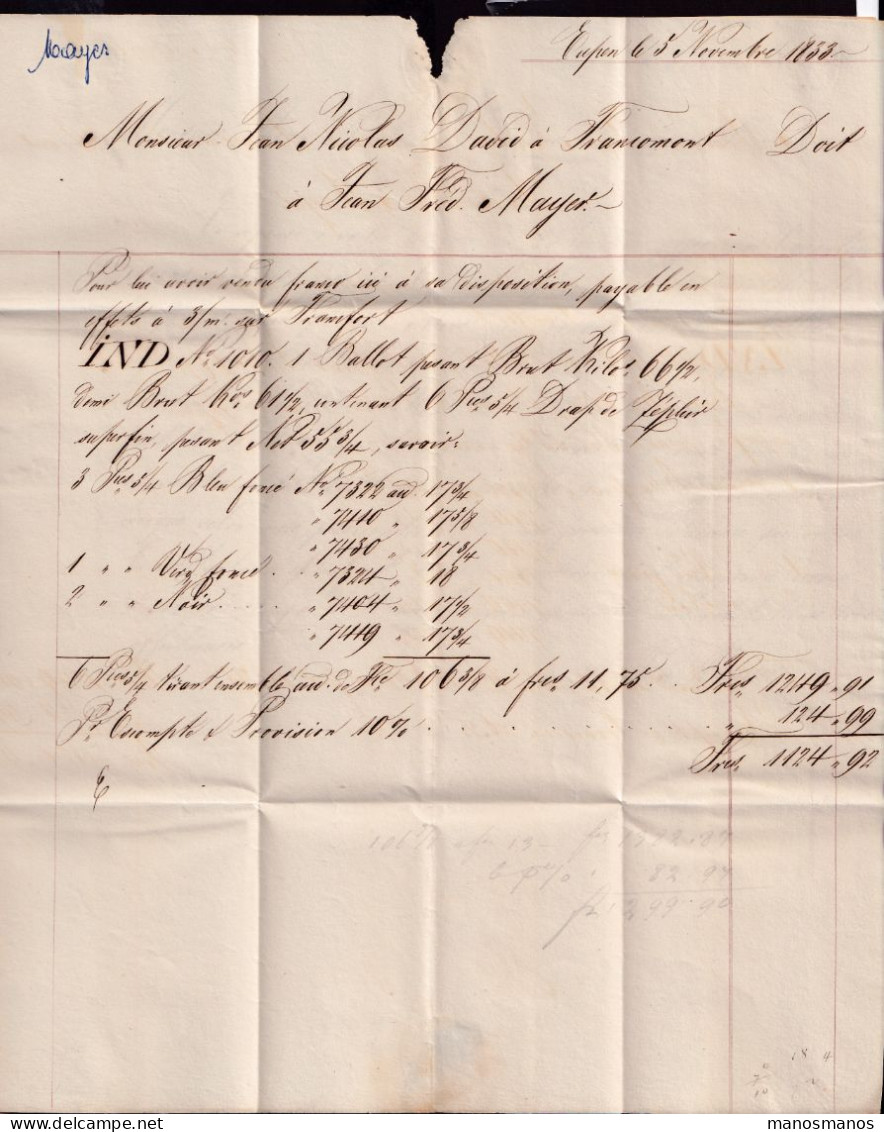 Mayer
Eupen le 5 Novembre 1833
Monsieur Jean Nicolas David à Francomont Doit
à Jean Fréd. Mayer.
Pour lui avoir vendu franco ici à sa disposition, payable en
effets à 3/m. sur Francfort
IND No. 1010. 1 Ballot pesant Brut Kilos. 66 1/2,
demi Brut Kos. 61 1/2, contenant 6 Pces. 5/4 Drap de Zephir
superfin, pesant Net 55 3/4, savoir:
3 Pces 5/4 Bleu foncé No. 7322 au. 17 3/4
" 7410 " 17 5/8
" 7430 " 17 3/4
1 " " Verd foncé . . " 7324 " 18
2 " " Noir . . . . " 7404 " 17 1/2
" 7449 " 17 3/4
6 Pces 5/4 tirant ensemble au. de 106 3/8 à frcs. 11,75 . . Frcs. 1249 " 91
Pr. Escompte & Provision 10% . . . . . . . . " 124 " 99
Frcs. 1124 " 92
E
82.97
manosmanos